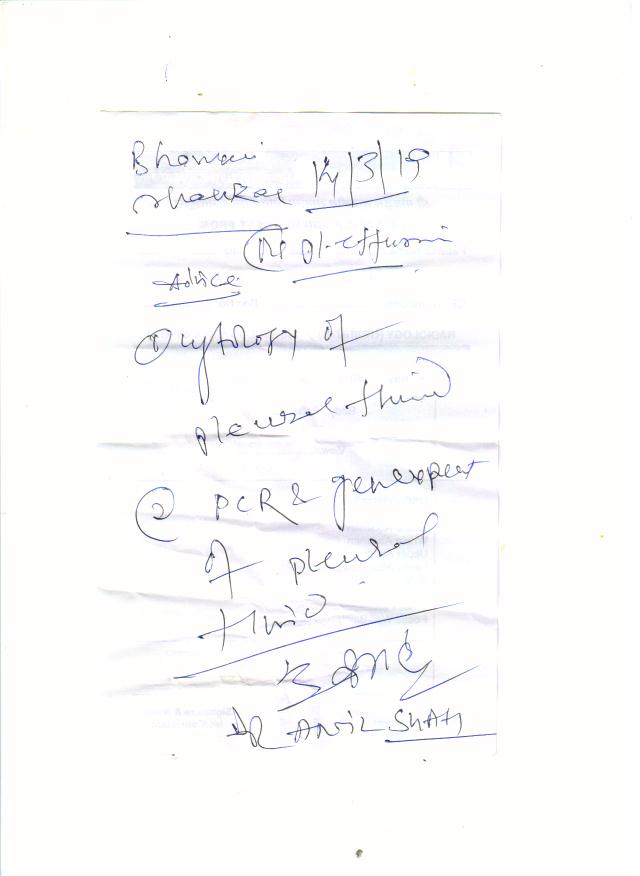 Bhawani
Shankar 14/3/19
Rt pl-effusion
Advice
① cytology of
pleural fluid
② PCR & genexpert
of pleural
fluid
DR ANIL SHAH